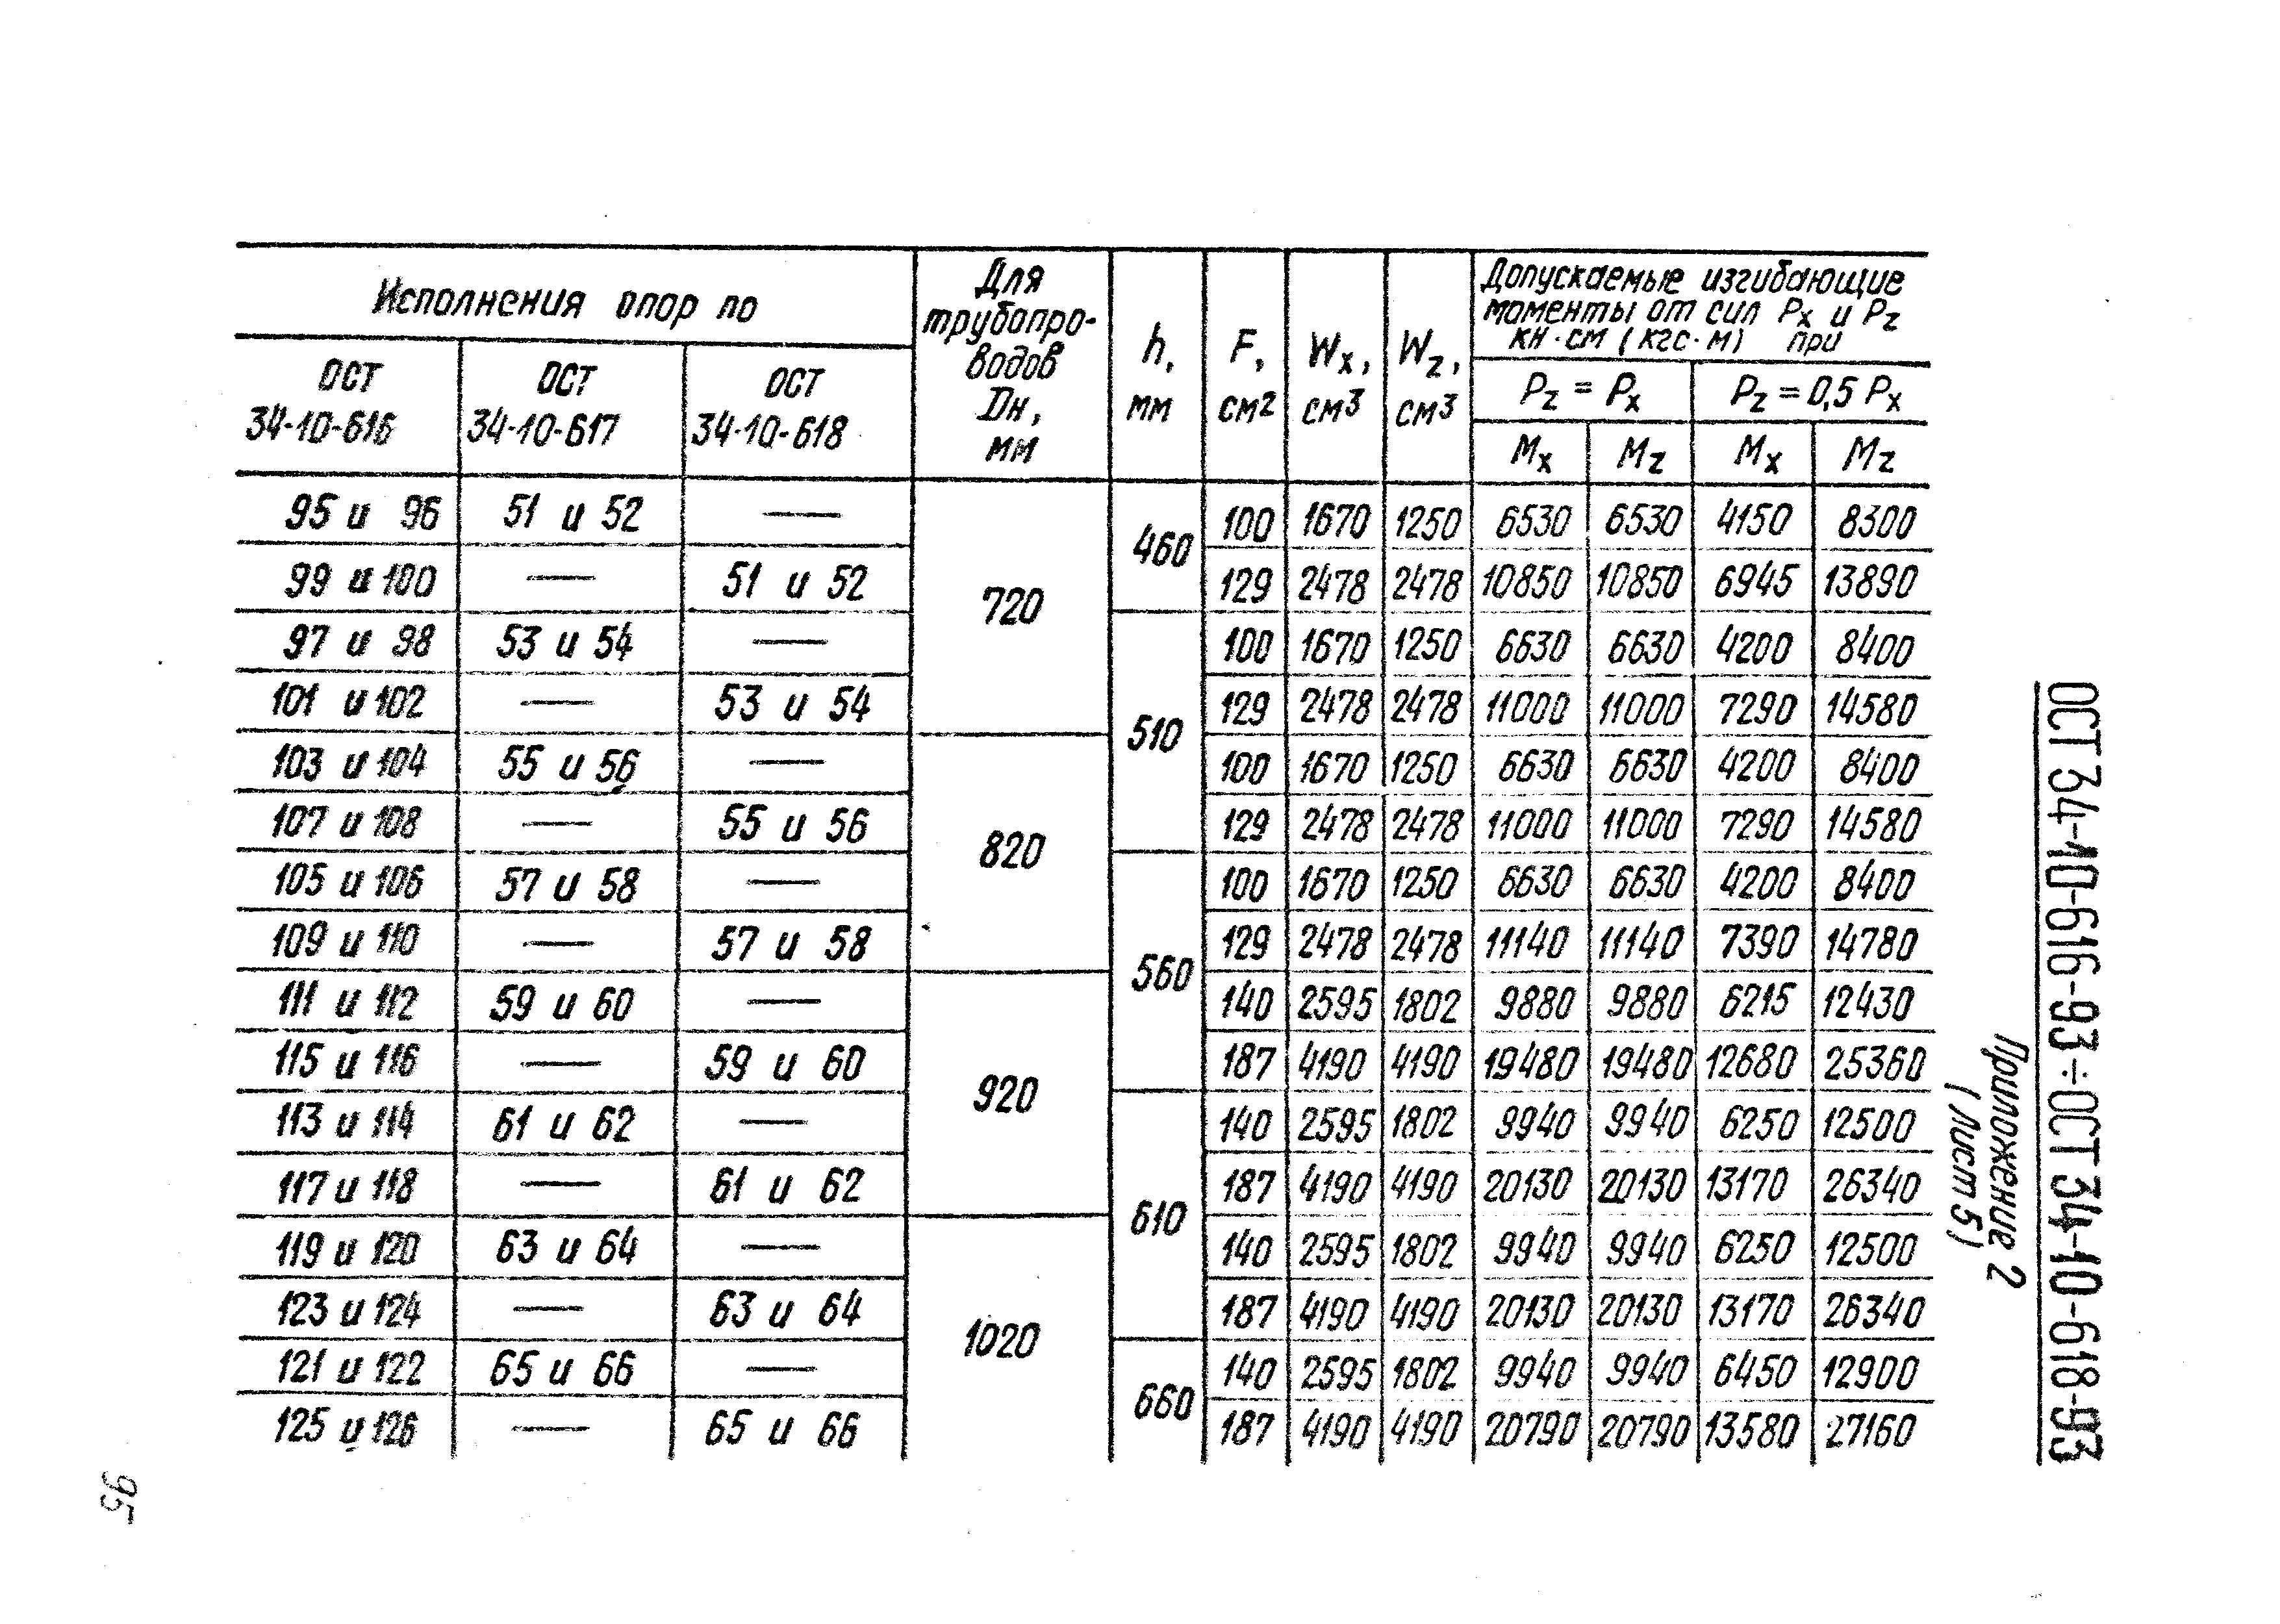 Исполнения опор по
Для трубопро-
водов
Dн,
мм
h,
мм
F,
см2
Wx,
см3
Wz,
см3
Допускаемые изгибающие
моменты от сил Px и Pz
кН·см (кгс·м) при
ОСТ
34-10-616
ОСТ
34-10-617
ОСТ
34-10-618
Pz = Px
Pz = 0,5 Px
Mx Mz Mx Mz
95 и 96 51 и 52 — 720 460 100 1670 1250 6530 6530 4150 8300
99 и 100 — 51 и 52 129 2478 2478 10850 10850 6945 13890
97 и 98 53 и 54 — 510 100 1670 1250 6630 6630 4200 8400
101 и 102 — 53 и 54 129 2478 2478 11000 11000 7290 14580
103 и 104 55 и 56 — 820 100 1670 1250 6630 6630 4200 8400
107 и 108 — 55 и 56 129 2478 2478 11000 11000 7290 14580
105 и 106 57 и 58 — 560 100 1670 1250 6630 6630 4200 8400
109 и 110 — 57 и 58 129 2478 2478 11140 11140 7390 14780
111 и 112 59 и 60 — 920 140 2595 1802 9880 9880 6215 12430
115 и 116 — 59 и 60 187 4190 4190 19480 19480 12680 25360
113 и 114 61 и 62 — 610 140 2595 1802 9940 9940 6250 12500
117 и 118 — 61 и 62 187 4190 4190 20130 20130 13170 26340
119 и 120 63 и 64 — 1020 140 2595 1802 9940 9940 6250 12500
123 и 124 — 63 и 64 187 4190 4190 20130 20130 13170 26340
121 и 122 65 и 66 — 660 140 2595 1802 9940 9940 6450 12900
125 и 126 — 65 и 66 187 4190 4190 20790 20790 13580 27160
ОСТ 34-10-616-93÷ОСТ 34-10-618-93
Приложение 2
(Лист 5)
95